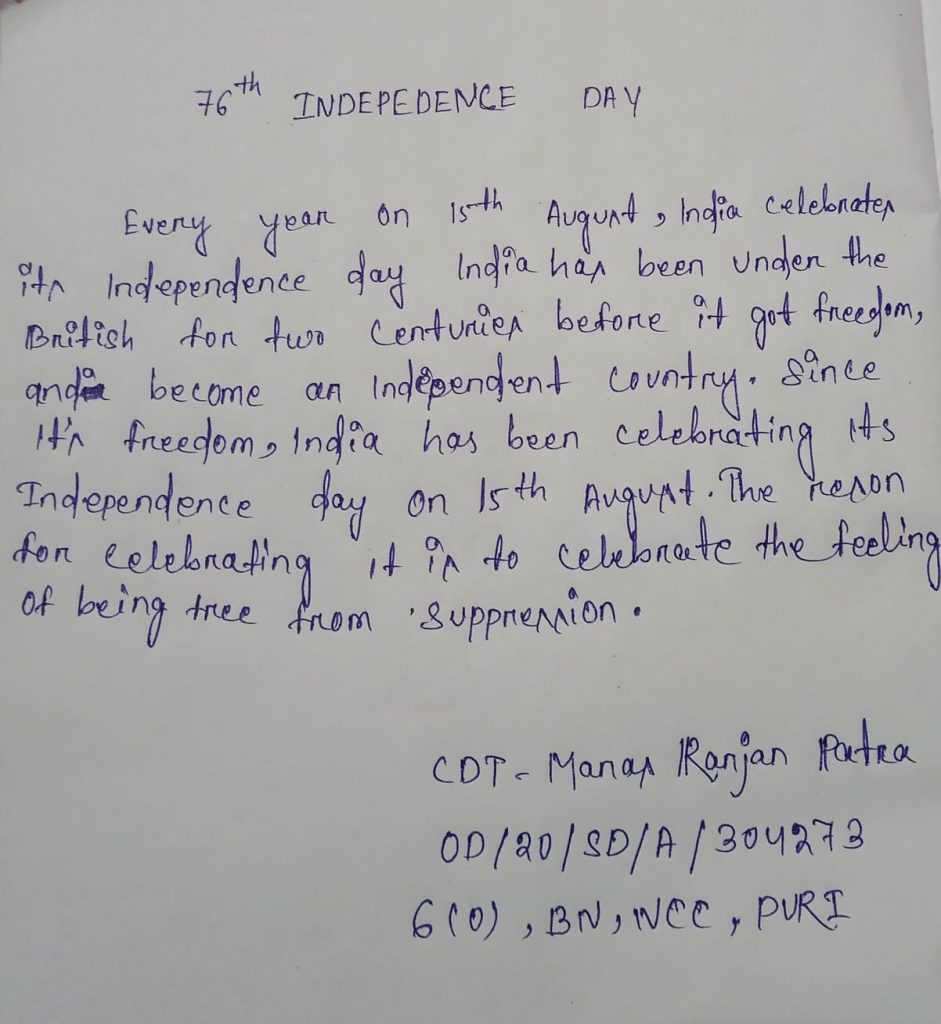 76th INDEPEDENCE DAY
Every year on 15th August, India celebrates
its Independence day India has been under the
British for two centuries before it got freedom,
and become an Independent country. Since
It's freedom, India has been celebrating its
Independence day on 15th August. The reson
for celebrating it is to celebrate the feeling
of being free from suppression.
CDT- Manas Ranjan Patra
OD/20/SD/A/304273
6(O), BN, NCC, PURI